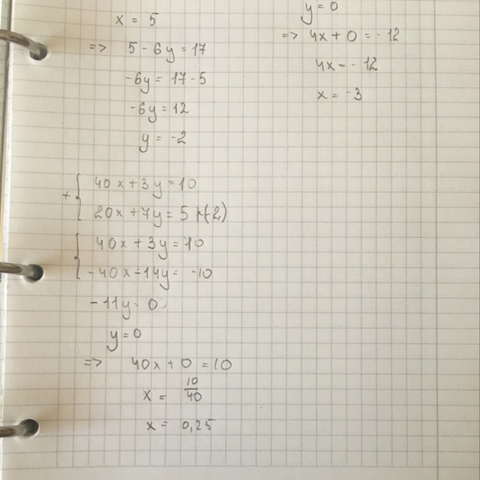 x = 5
=> 5 - 6y = 17
-6y = 17-5
-6y = 12
y = -2
y = 0
=> 4x + 0 = -12
4x = -12
x = -3
+ { 40x + 3y = 10
20x + 7y = 5 |·(-2)
{ 40x + 3y = 10
-40x - 14y = -10
-11y = 0
y = 0
=> 40x + 0 = 10
x = 10/40
x = 0,25